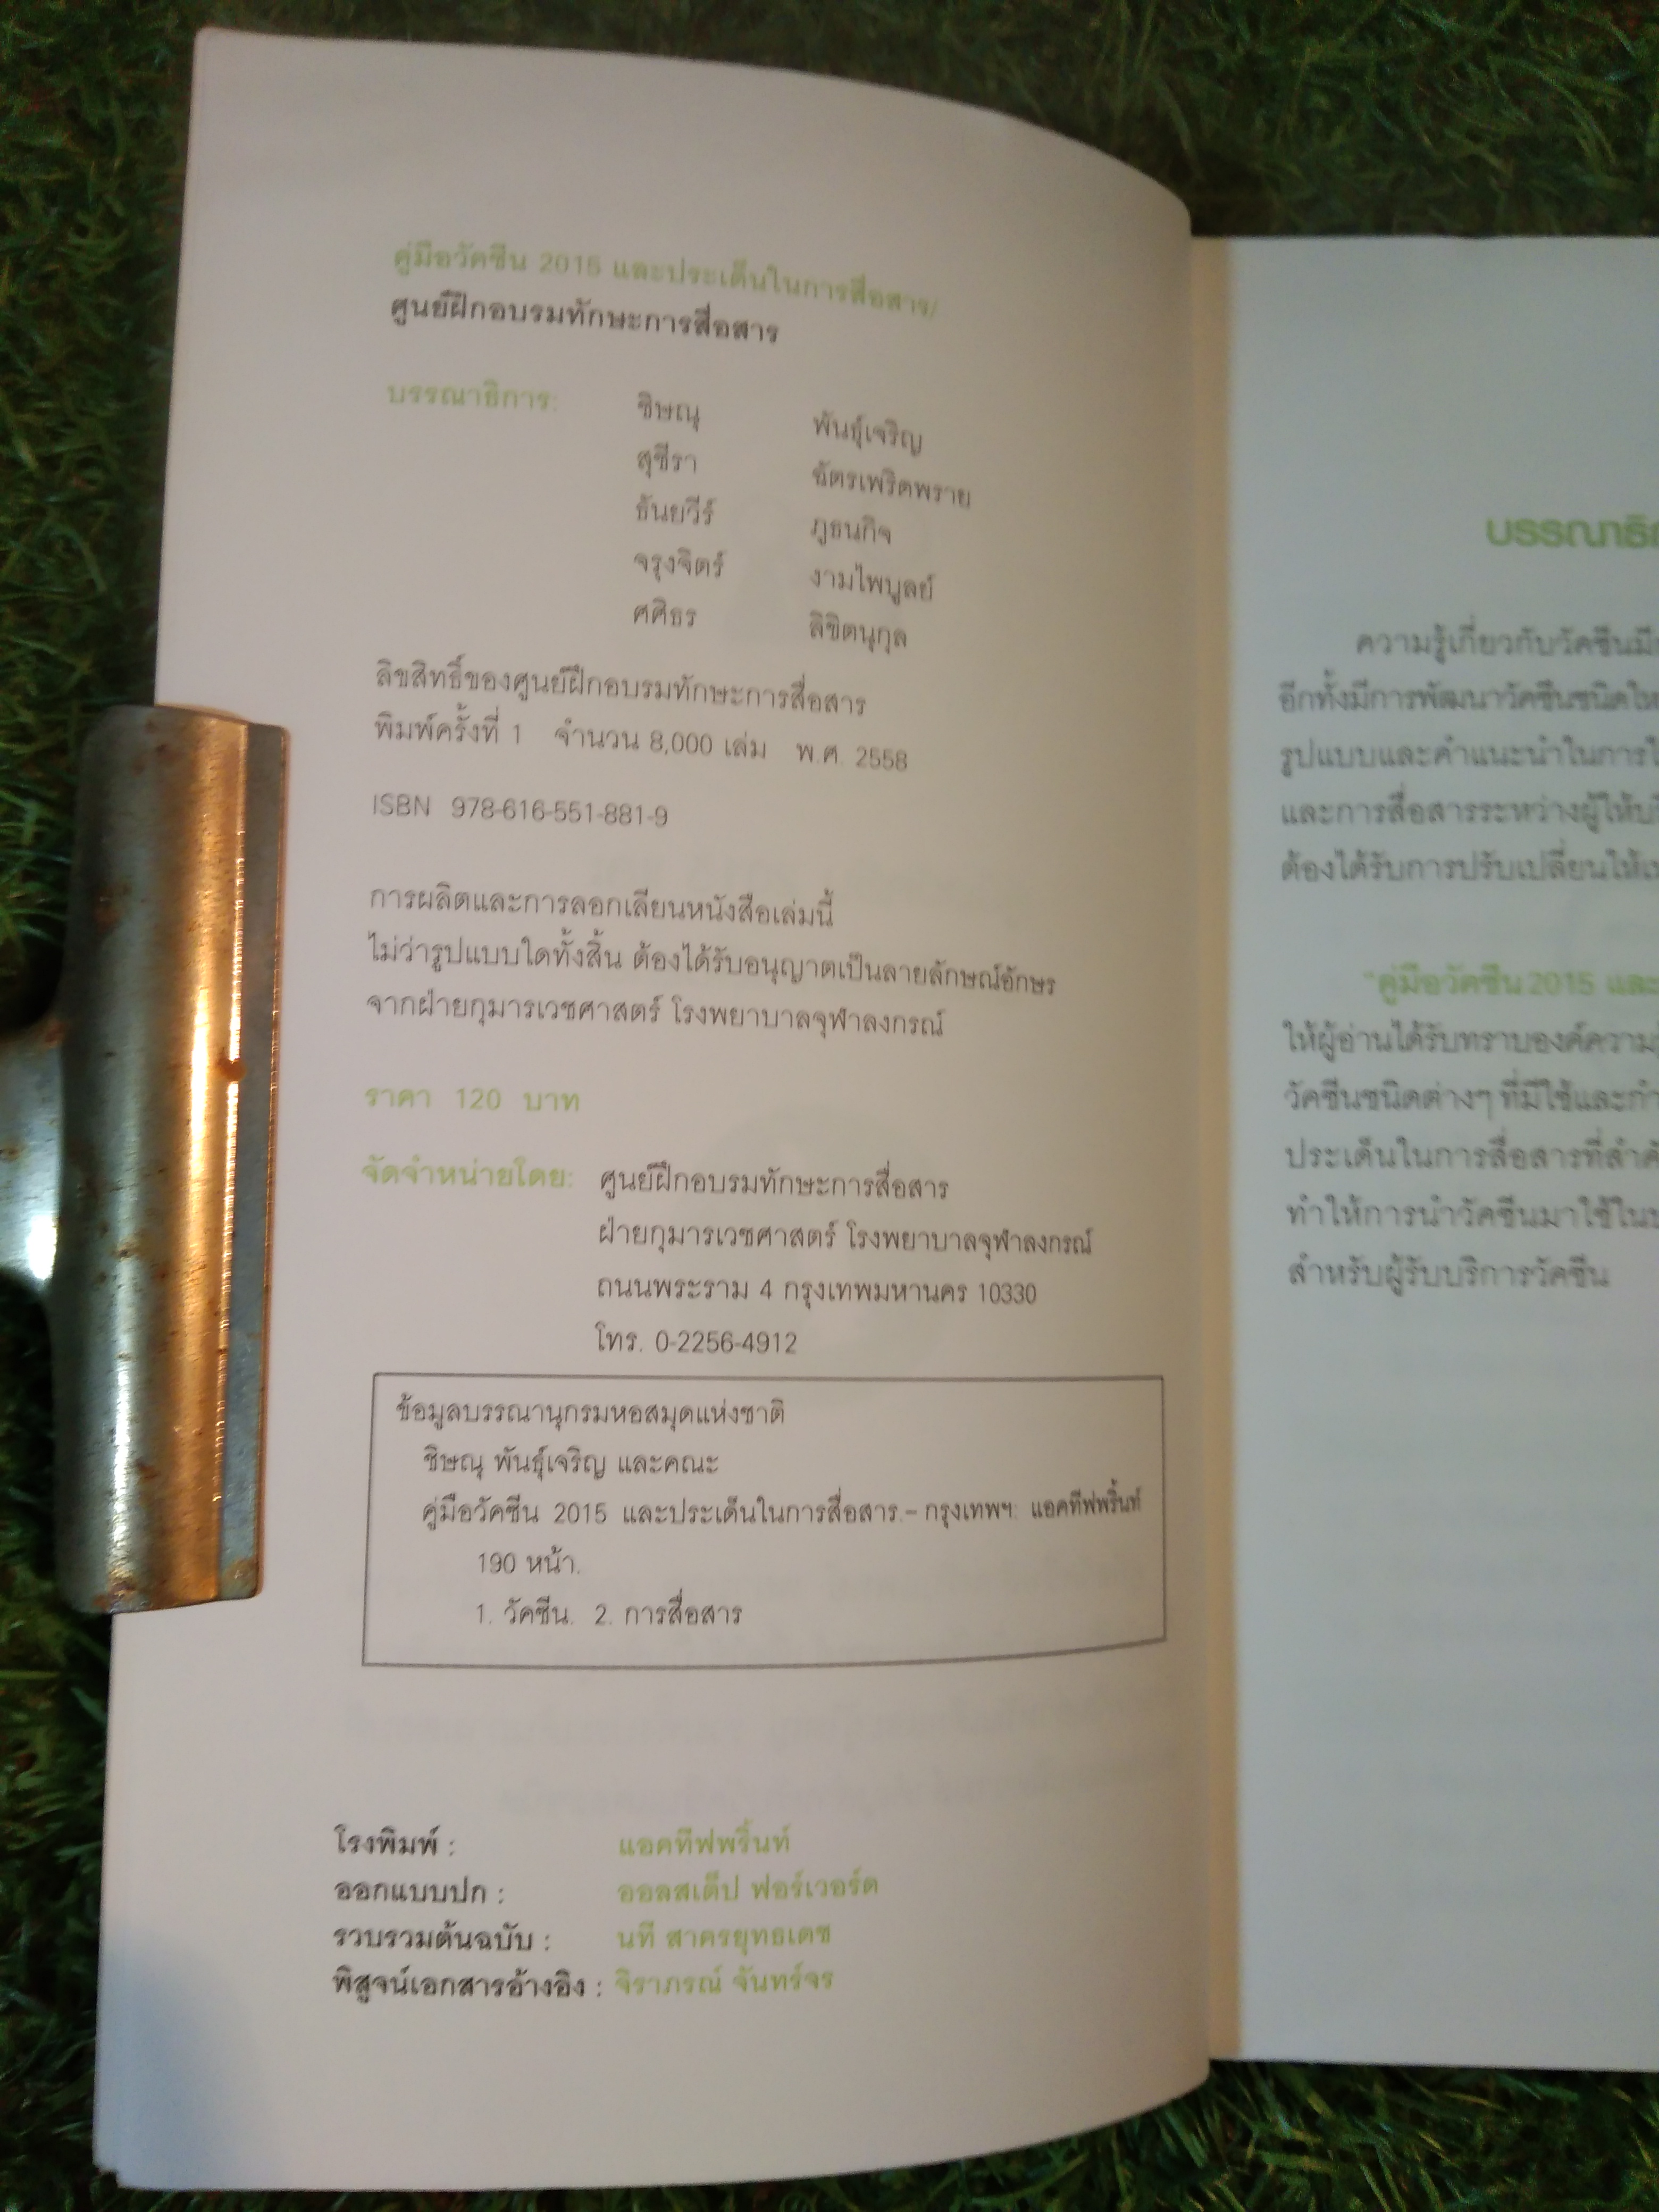 คู่มือวัคซีน 2015 และประเด็นในการสื่อสาร/
ศูนย์ฝึกอบรมทักษะการสื่อสาร
บรรณาธิการ: ชิษณุ พันธุ์เจริญ
สุชีรา ฉัตรเพริดพราย
ธันยวีร์ ภูธนกิจ
จรุงจิตร์ งามไพบูลย์
ศศิธร ลิขิตนุกุล
ลิขสิทธิ์ของศูนย์ฝึกอบรมทักษะการสื่อสาร
พิมพ์ครั้งที่ 1 จำนวน 8,000 เล่ม พ.ศ. 2558
ISBN 978-616-551-881-9
การผลิตและการลอกเลียนหนังสือเล่มนี้
ไม่ว่ารูปแบบใดทั้งสิ้น ต้องได้รับอนุญาตเป็นลายลักษณ์อักษร
จากฝ่ายกุมารเวชศาสตร์ โรงพยาบาลจุฬาลงกรณ์
ราคา 120 บาท
จัดจำหน่ายโดย: ศูนย์ฝึกอบรมทักษะการสื่อสาร
ฝ่ายกุมารเวชศาสตร์ โรงพยาบาลจุฬาลงกรณ์
ถนนพระราม 4 กรุงเทพมหานคร 10330
โทร. 0-2256-4912
ข้อมูลบรรณานุกรมหอสมุดแห่งชาติ
ชิษณุ พันธุ์เจริญ และคณะ
คู่มือวัคซีน 2015 และประเด็นในการสื่อสาร.- กรุงเทพฯ: แอคทีฟพริ้นท์
190 หน้า.
1. วัคซีน. 2. การสื่อสาร
โรงพิมพ์ : แอคทีฟพริ้นท์
ออกแบบปก : ออลสเต็ป ฟอร์เวอร์ด
รวบรวมต้นฉบับ : นที สาครยุทธเดช
พิสูจน์เอกสารอ้างอิง : จิราภรณ์ จันทร์จร
ความรู้เกี่ยวกับวัคซีนมี
อีกทั้งมีการพัฒนาวัคซีนชนิดให
รูปแบบและคำแนะนำในการใ
และการสื่อสารระหว่างผู้ให้บ
ต้องได้รับการปรับเปลี่ยนให้
"คู่มือวัคซีน 2015 และ
ให้ผู้อ่านได้รับทราบองค์ความ
วัคซีนชนิดต่างๆ ที่มีใช้และกำ
ประเด็นในการสื่อสารที่สำค
ทำให้การนำวัคซีนมาใช้ใน
สำหรับผู้รับบริการวัคซีน